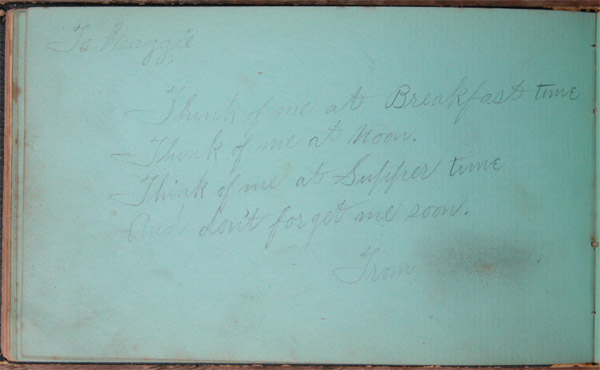 To Maggie
Think of me at Breakfast time
Think of me at Noon.
Think of me at Supper time
And don't forget me soon.
From